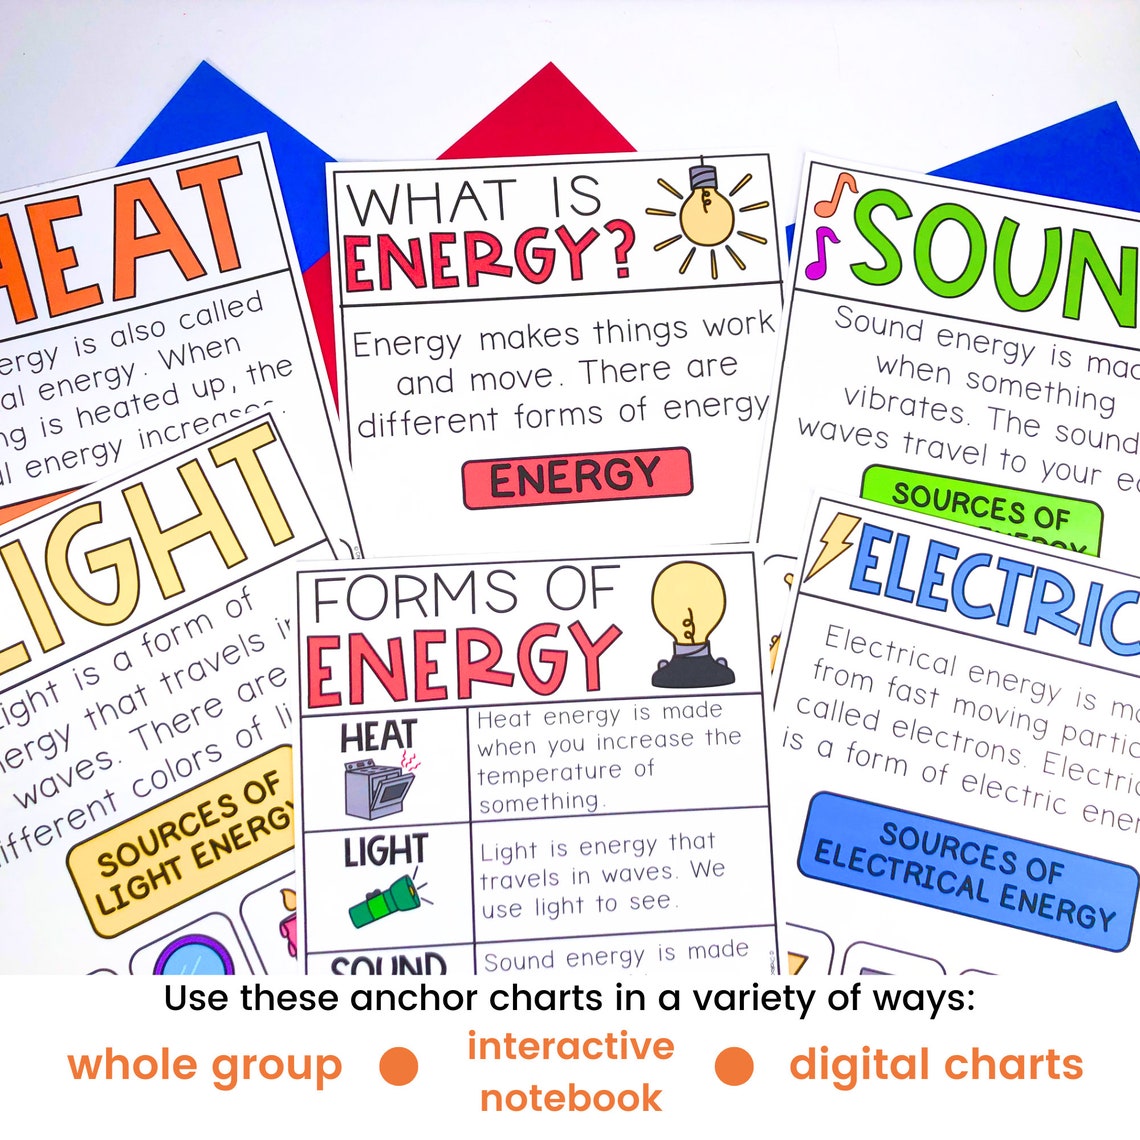 HEAT
ergy is also called
al energy. When
ng is heated up, the
al energy increases.
WHAT IS
ENERGY?
Energy makes things work
and move. There are
different forms of energy
ENERGY
SOUN
Sound energy is mad
when something
vibrates. The sound
waves travel to your ea
SOURCES OF
ENERGY
LIGHT
Light is a form of
nergy that travels in
waves. There are
ifferent colors of li
SOURCES OF
LIGHT ENERGY
FORMS OF
ENERGY
HEAT
Heat energy is made
when you increase the
temperature of
something.
LIGHT
Light is energy that
travels in waves. We
use light to see.
SOUND
Sound energy is made
ELECTRIC
Electrical energy is ma
from fast moving partic
called electrons. Electric
is a form of electric ener
SOURCES OF
ELECTRICAL ENERGY
Use these anchor charts in a variety of ways:
whole group
interactive
notebook
digital charts